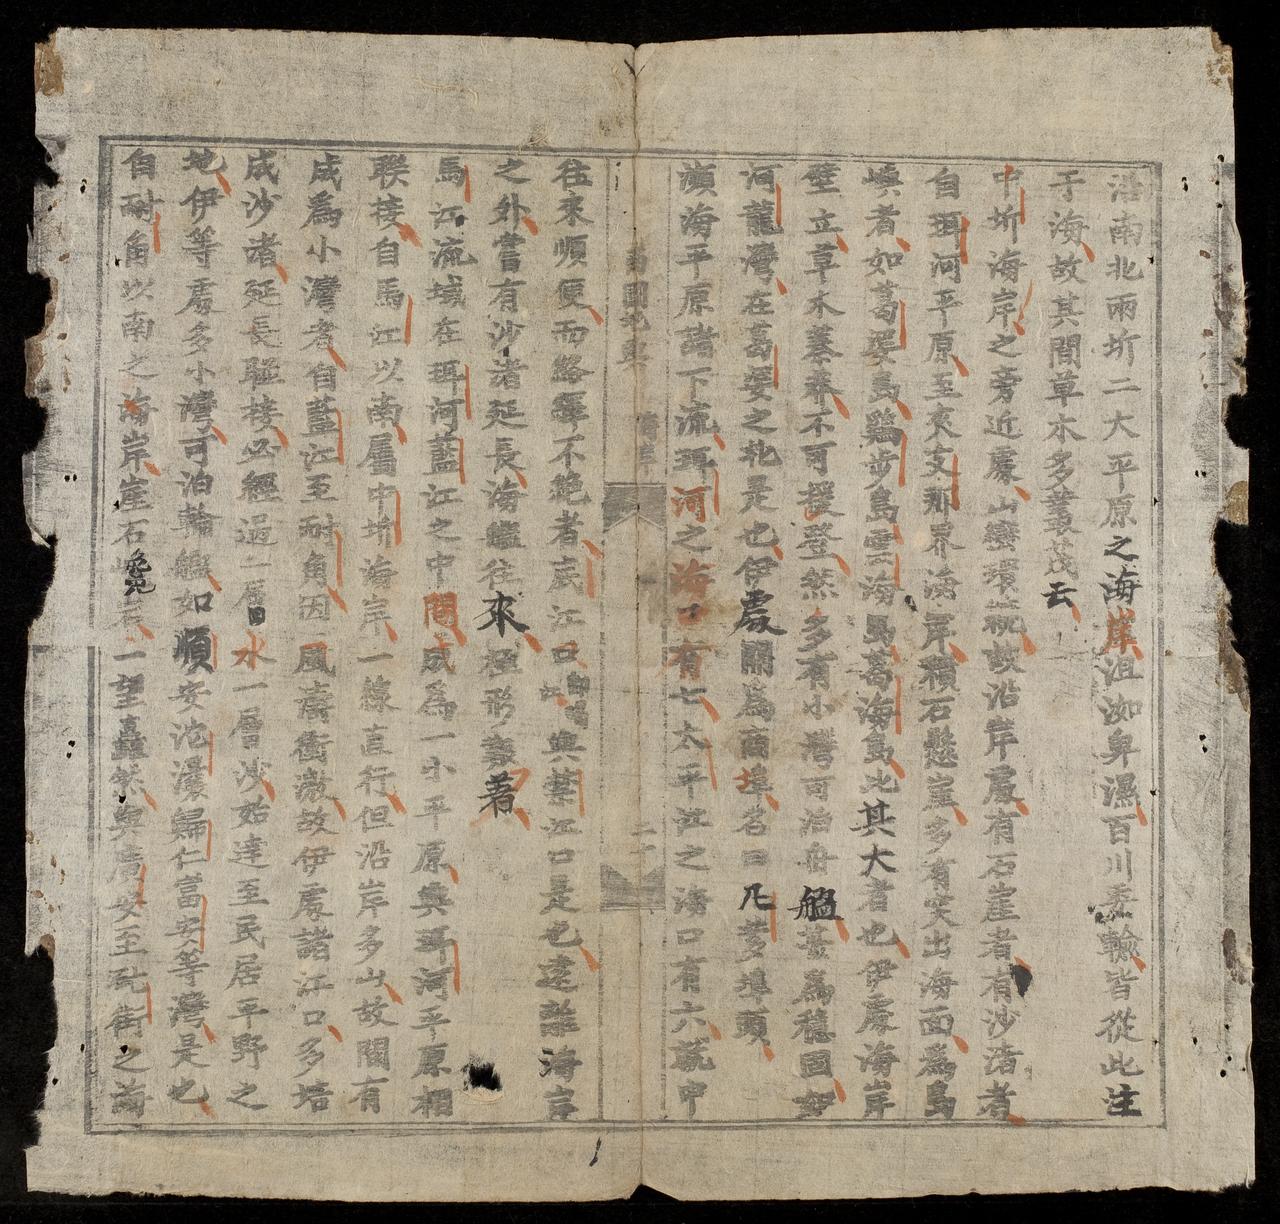 沿南北兩圻二大平原之海岸沮洳卑濕百川委輸皆從此注
于海故其間草木多叢茂云
中圻海岸之旁近處山巒環繞故沿岸處有石崖者有沙渚者
自珥河平原至東支那界海岸積石懸崖多有突出海面為島
嶼者如葛婆島鷄步島雲海島葛海島此其大者也伊處海岸
壁立草木蓁莽不可援登然多有小灣可泊舟艦甚為穩固如
河龍灣在葛婆之北是也伊處關為商埠名曰凡爹埠頭
瀕海平原諸下流珥河之海口有七太平江之海口有六就中
南國地輿
二十
往來順便而絡繹不絶者底江口與禁江口是也逮離海岸
之外嘗有沙渚延長海艦往來極形礙著
馬江流域在珥河藍江之中間成為一小平原與珥河平原相
聯接自馬江以南屬中圻海岸一線直行但沿岸多山故間有
成為小灣者自藍江至耐角因風濤衝激故伊處諸江口多培
成沙渚延長聯接必經過一層水一層沙始達至民居平野之
地伊等處多小灣可泊輪艦如順安沱灢歸仁富安等灣是也
自耐角以南之海岸崖石巉一望矗然與廣安至阮街之海